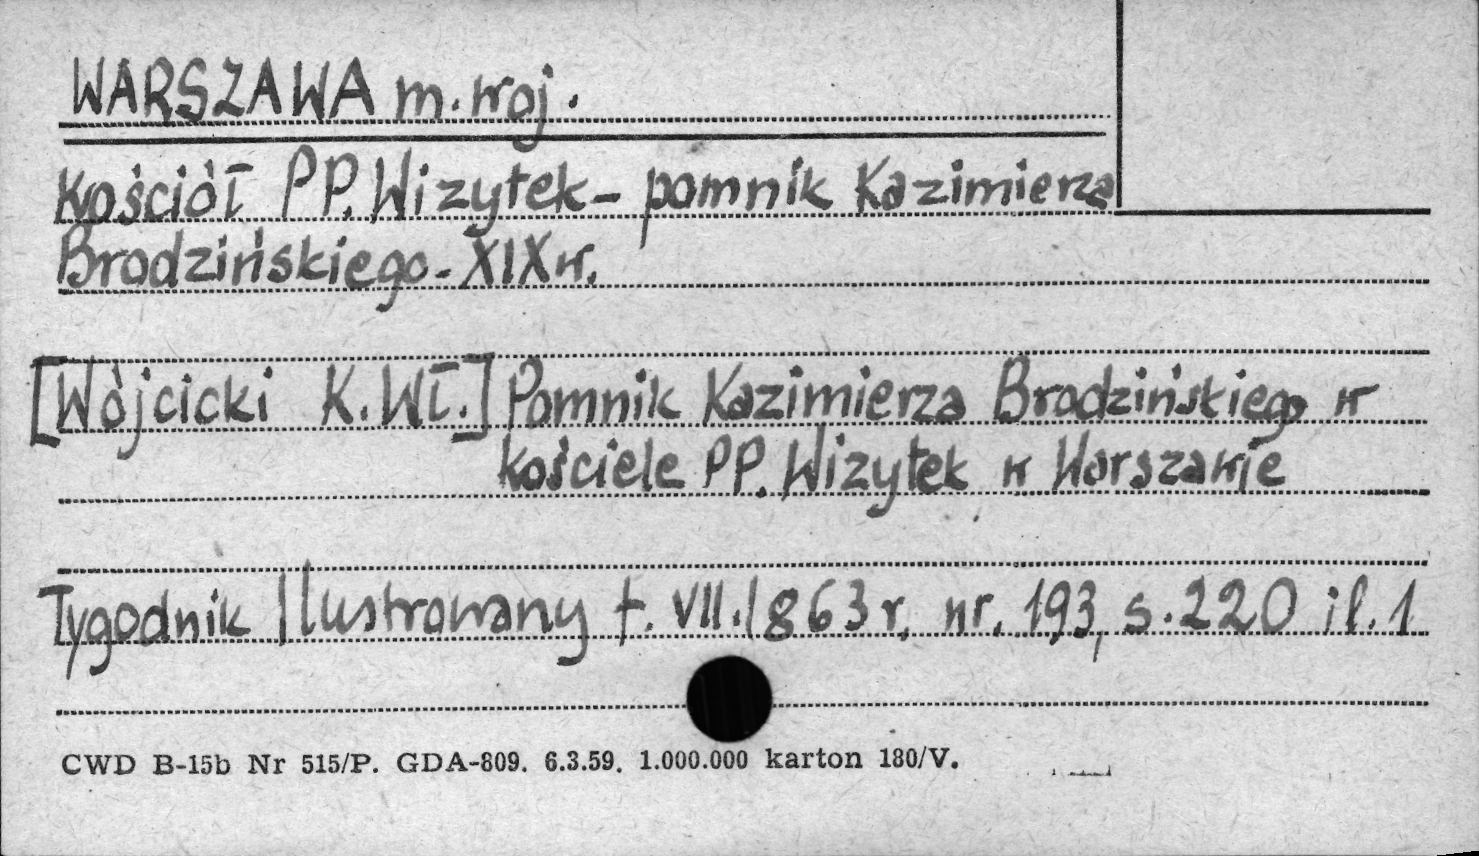 WARSZAWA m. woj.
Kościół PP. Wizytek - pomnik Kazimierza
Brodzińskiego - XIX w.
[Wójcicki K. Wł.] Pomnik Kazimierza Brodzińskiego w
kościele PP. Wizytek w Warszawie
Tygodnik Ilustrowany t. VII. 1863 r, nr. 193, s. 220 il. 1
CWD B-15b Nr 515/P. GDA-809. 6.3.59. 1.000.000 karton 180/V.